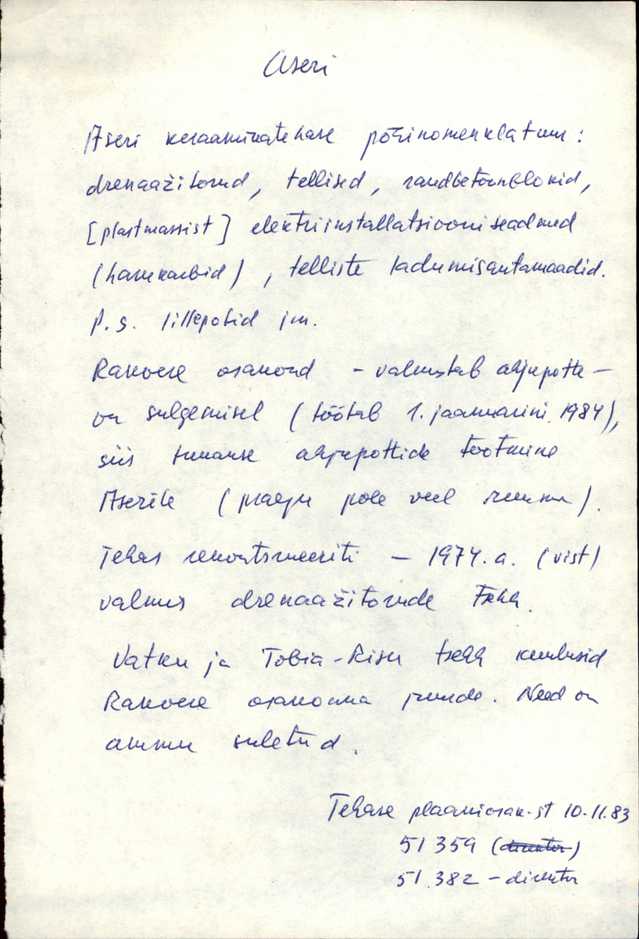 Aseri
Aseri keraamikatehase põhinomenklatuur:
drenaažitorud, tellised, raudbetoonblokid,
[plastmassist] elektriinstallatsiooniseadmed
(harukarbid), telliste ladumisautomaadid.
P.S. lillepotid jm.
Rakvere osakond – valmistab ahjupotte –
on sulgemisel (töötab 1. jaanuarini 1984),
siis tuuakse ahjupottide tootmine
Aserile (praegu pole veel ruumi).
Tehas rekonstrueeriti – 1974.a. (vist)
valmis drenaažitorude tsehh.
Vatku ja Tobia-Risu tsehh kuulusid
Rakvere osakonna juurde. Need on
ammu suletud.
Tehase plaaniosak-st 10.11.83
51 359 (direktor)
51.382 – direktor